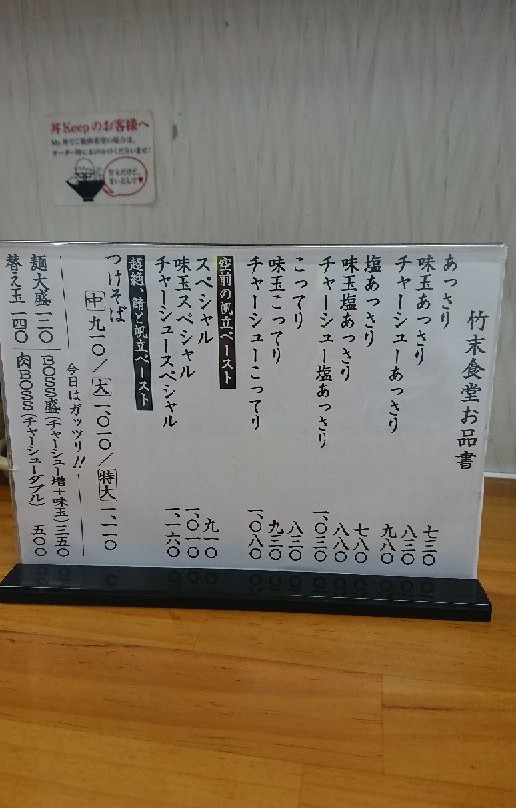 丼Keepのお客様へ
竹末食堂お品書
あっさり 七三〇
味玉あっさり 八三〇
チャーシューあっさり 九八〇
塩あっさり 七八〇
味玉塩あっさり 八八〇
チャーシュー塩あっさり 一、〇三〇
こってり 八三〇
味玉こってり 九三〇
チャーシューこってり 一、〇八〇
空前の帆立ペースト
スペシャル 九一〇
味玉スペシャル 一、〇一〇
チャーシュースペシャル 一、一六〇
超絶 鯖と帆立ペースト
つけそば
中 九一〇／大 一、〇一〇／特大 一、一一〇
今日はガッツリ!!
麺大盛 一二〇
BOSS盛(チャーシュー増+味玉)三五〇
替え玉 一四〇
肉BOSS(チャーシューダブル) 五〇〇